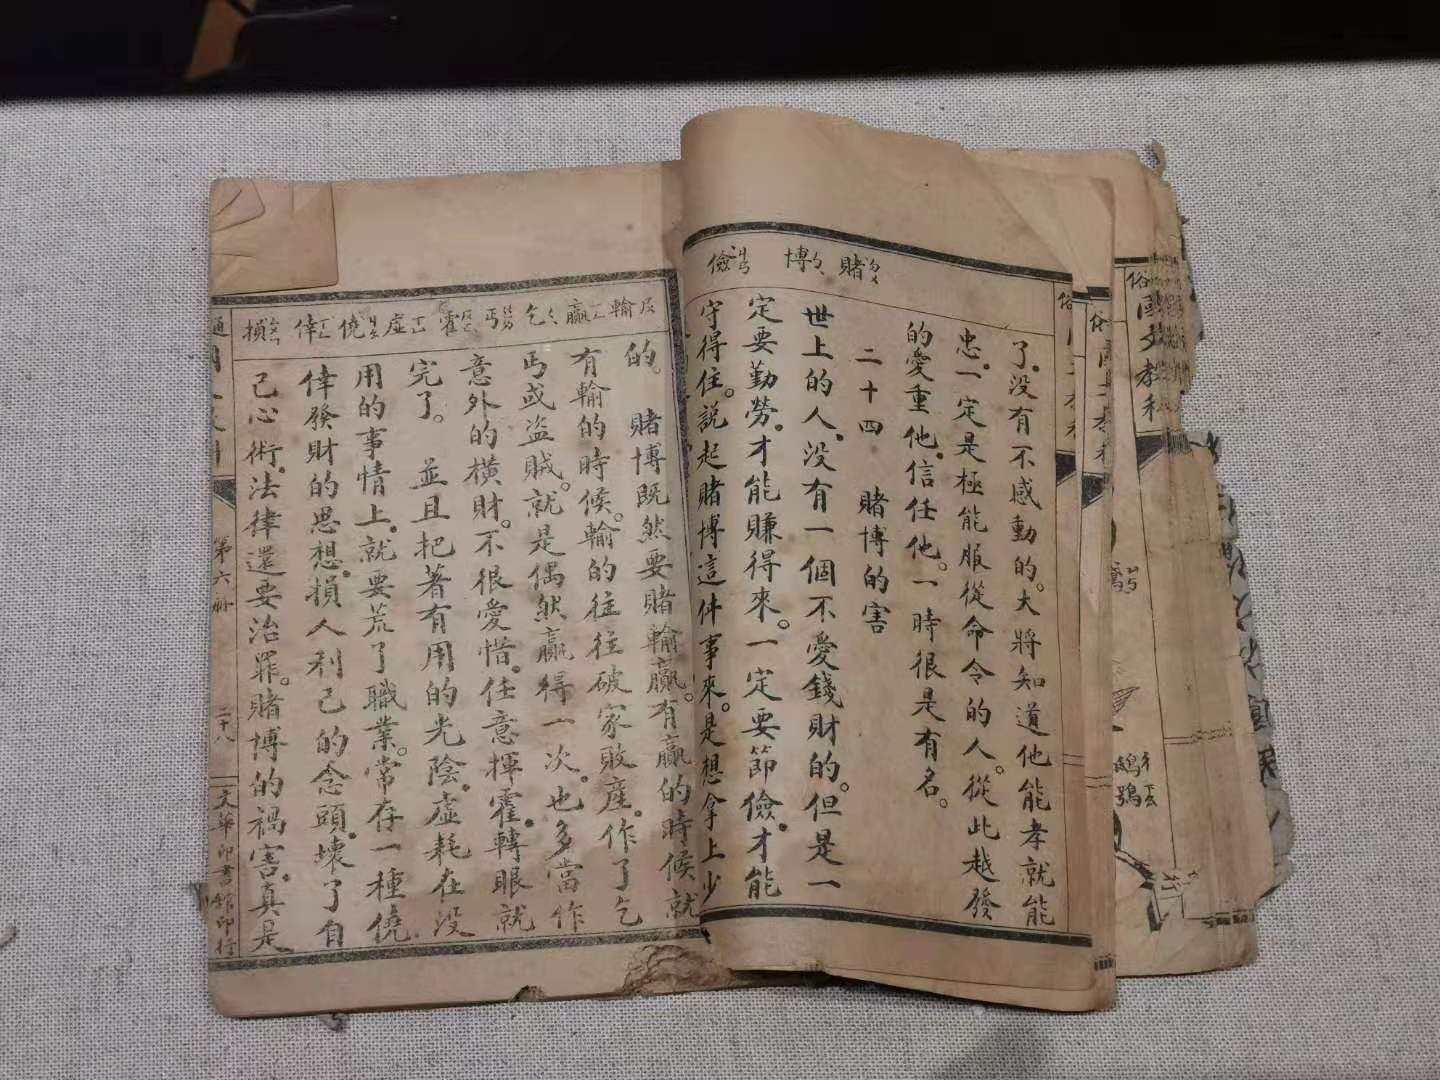 賭 博 儉
了。没有不感動的。大將知道他能孝就能
忠。一定是極能服從命令的人。從此越發
的愛重他。信任他。一時很是有名。
二十四 賭博的害
世上的人。没有一個不愛錢財的。但是一
定要勤勞。才能賺得來。一定要節儉。才能
守得住。説起賭博這件事來。是想拿上少
輸 贏 乞 丐 霍 虛 僥 倖 損
的。 賭博既然要賭輸贏。有贏的時候。就
有輸的時候。輸的往往破家敗產。作了乞
丐或盜賊。就是偶然贏得一次。也多當作
意外的橫財。不很愛惜。任意揮霍。轉眼就
完了。 並且把著有用的光陰。虛耗在没
用的事情上。就要荒了職業。常存一種僥
倖發財的思想。損人利己的念頭。壞了自
己心術。法律還要治罪。賭博的禍害。真是
第六册 二十八 文華印書館印行
俗國文教科